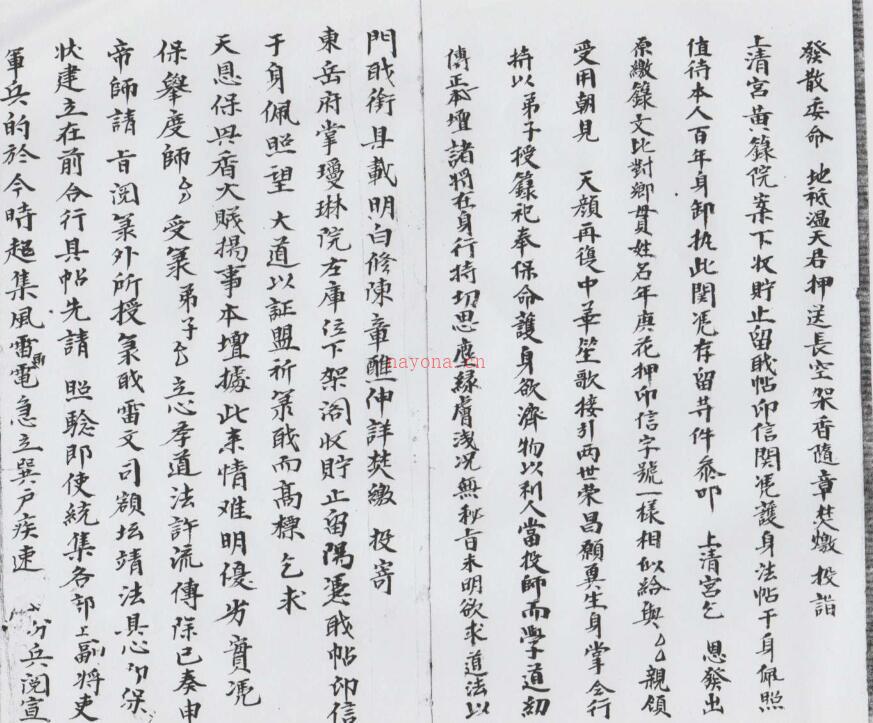 發散委命 地祇溫天君押送長空架香隨章焚燬投詣
上清宮黃籙院案下收貯止留戝帖印信関凴護身法帖于身佩照
值待本人百年身卸执此関凴存留苛件叅叩 上清宮乞 恩發出
原繳籙文比對鄉貫姓名年庚花押印信字號一樣相似給與厶厶親領
受用朝見 天顔再復中華笙歌接引两世荣昌願真生身掌令行
持以弟子授籙祀奉保命護身欲濟物以利人當投師而學道初
傳正本壇諸將在身行持切思塵緣膚浅况無秘旨未明欲求道法以
門戝銜具載明白修陳章醮伸詳焚繳 投寄
東岳府掌瓊琳院左庫位下架阁收貯止留陽凴戝帖印信
于身佩照望 大道以証盟祈籙戝而髙標乞求
天恩保與香火賤揚事本壇據此来情难明優劣實凴
保舉度師厶厶受籙弟子厶立心奉道法許流傳除已奏申
帝師請 旨阅籙外所授籙戝雷文司额坛靖法具心印保
狀建立在前合行具帖先請 照騐即使統集各部上副將吏
軍兵的於今時超集風雷雨電急立巽户疾速 分兵阅宣
nayona.cn